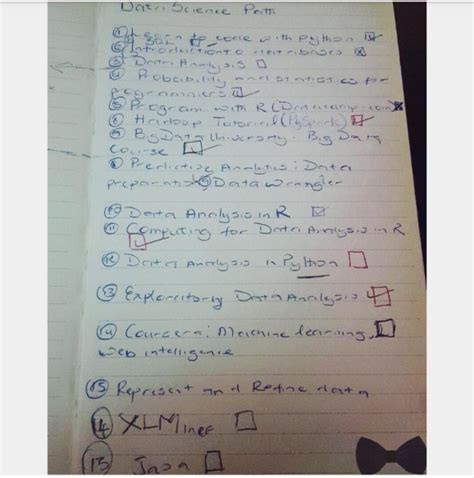 Data Science Path
① Learn to code with Python
② Introduction to databases
& SQL
③ Data Analysis
④ Probability and statistics for
programmers
⑤ Program with R (Datacamp.com)
⑥ Hadoop Tutorial (PySpark)
⑦ Big Data University: Big Data
Course
⑧ Predictive Analytics: Data
preparation ⑨ Data wrangler
⑩ Data Analysis in R
⑪ Computing for Data Analysis in R
⑫ Data Analysis in Python
⑬ Exploratory Data Analysis
⑭ Coursera: Machine learning,
web intelligence
⑮ Represent and Refine data
⑭ XLMiner
⑬ Java